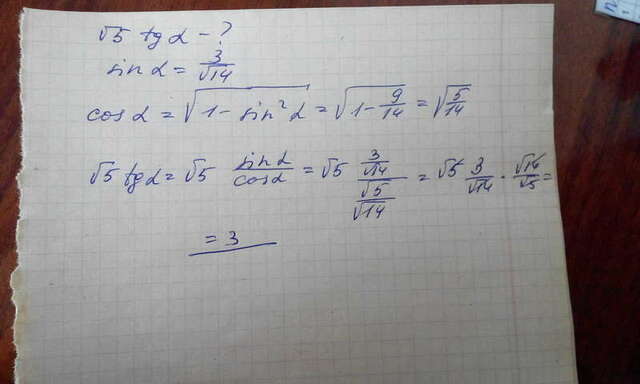 √5 tg α - ?
sin α = 3/√14
cos α = √(1 - sin² α) = √(1 - 9/14) = √(5/14)
√5 tg α = √5 sin α/cos α = √5 (3/√14)/(√5/√14) = √5 3/√14 · √14/√5 =
= 3